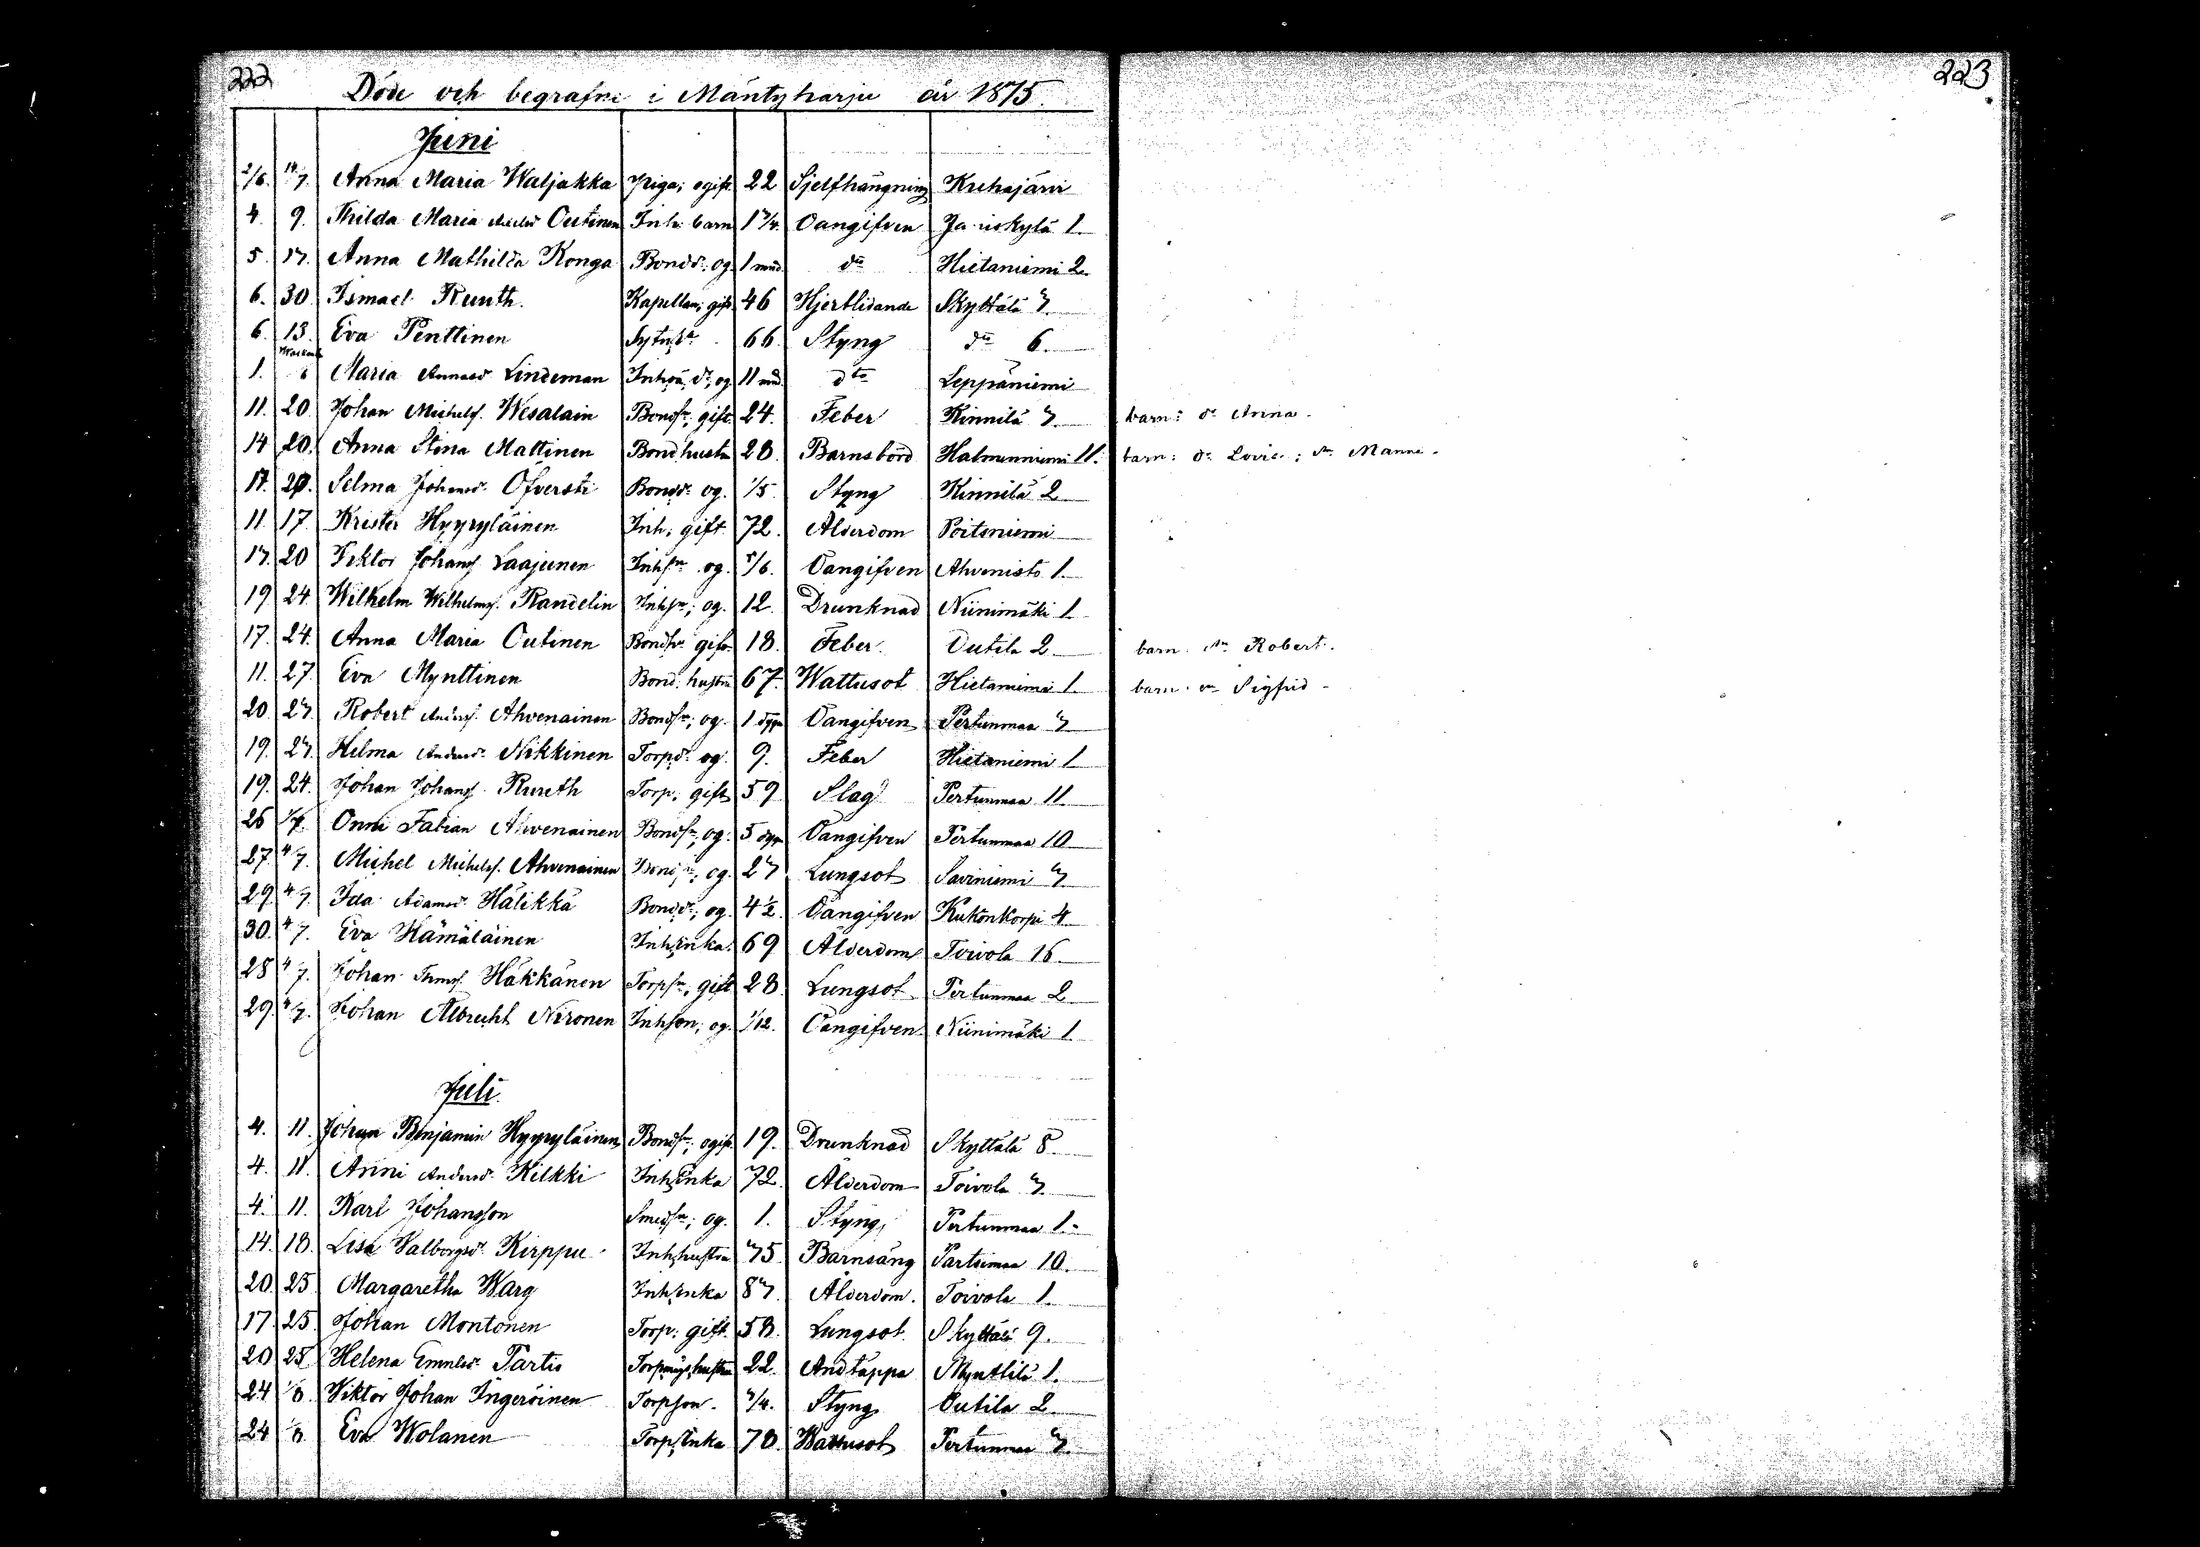 222
Döde och begrafne i Mäntyharju år 1875.
223
Juni
2/6. 14/7. Anna Maria Waljakka Piga; ogift 22 Sjelfhängning Kuhajärvi
4. 9. Thilda Maria Outinen Inh: barn 1 3/4. Oangifven 1.
5. 17. Anna Mathilda Konga Bondd:, og. 1 mnd. dto Hietaniemi 2.
6. 30. Ismael Runth. Kapellan; gift 46 Hjertlidande Skyttälä 7.
6. 13. Eva Penttinen 66. Styng dto 6.
1. Maria Annasdr Lindeman 11 mnd. dto Leppäniemi
11. 20. Johan Michelsf. Wesalain Bondsn; gift 24. Feber Kinnilä 7. barn: dr Anna.
14 20. Anna Stina Mattinen Bond.hustr 28. Barnsbörd Halmenniemi 11. barn: dr Lovisa; sn Manne.
17. 20. Selma Johansdr Öfversti Bonddr og. 1/5. Styng Kinnilä 2
11. 17. Krister Hyyryläinen Inh; gift 72. Ålderdom Poitsniemi
17. 20 Viktor Johansf Laajunen Inhsn og. 5/6. Oangifven Ahvenisto 1.
19 24. Wilhelm Wilhelmsf. Randelin Inhsn; og. 12. Drunknad Niinimäki 1.
17. 24. Anna Maria Outinen gift 18. Feber Outila 2. barn. sn Robert.
11. 27. Eva Mynttinen Bond. hustru 67. Wattusot Hietaniemi 1. barn. sn Sigfrid
20. 27. Robert Andersf. Ahvenainen Bondsn; og. 1 dygn Oangifven Pertunmaa 7
19. 27. Hilma Andersdr Nikkinen Torpdr og. 9. Feber Hietaniemi 1
19. 24. Johan Johansf. Rureth Torp; gift 59 Slag Pertunmaa 11.
26 1/7. Onni Fabian Ahvenainen Bondsn; og. 5 dygn Oangifven Pertunmaa 10
27. 4/7. Michel Michelsf. Ahvenainen Bondsn; og. 27 Lungsot Saviniemi 7
29. 4/7. Ida Adamsdr Hälikkä Bonddr; og. 4 1/2. Oangifven Kukonkorpi 4.
30. 4/7. Eva Hämäläinen Inh.enka. 69 Ålderdom Toivola 16.
28 4/7. Johan Thmsf. Häkkänen Torpsn; gift 28. Lungsot Pertunmaa 2
29. 4/7. Johan Albrecht Nironen Inhson; og. 1/12. Oangifven Niinimäki 1.
Juli.
4. 11. Johan Benjamin Hyyryläinen Bondsn; ogift 19. Drunknad Skyttälä 8.
4. 11. Anni Andersdr Kilkki Inh.enka 72. Ålderdom Toivola 7.
4. 11. Karl Johansson Smedsn; og. 1. Styng, Pertunmaa 1.
14. 18. Lisa Valborgsdr Kirppu Inh.hustru 75. Barnsäng Partsimaa 10.
20. 25. Margaretha Warg Inh.enka 87. Ålderdom. Toivola 1.
17. 25. Johan Montonen Torp: gift. 58. Lungsot. Skyttälä 9.
20. 25. Helena Emnlsdr Pärtis 22. Andtäppa Mynttilä 1.
24 1/8. Viktor Johan Ingeröinen Torpson. 3/4. Styng Outila 2.
24 1/8. Eva Wolanen Torp.enka 78. Wattusot Pertunmaa 7.